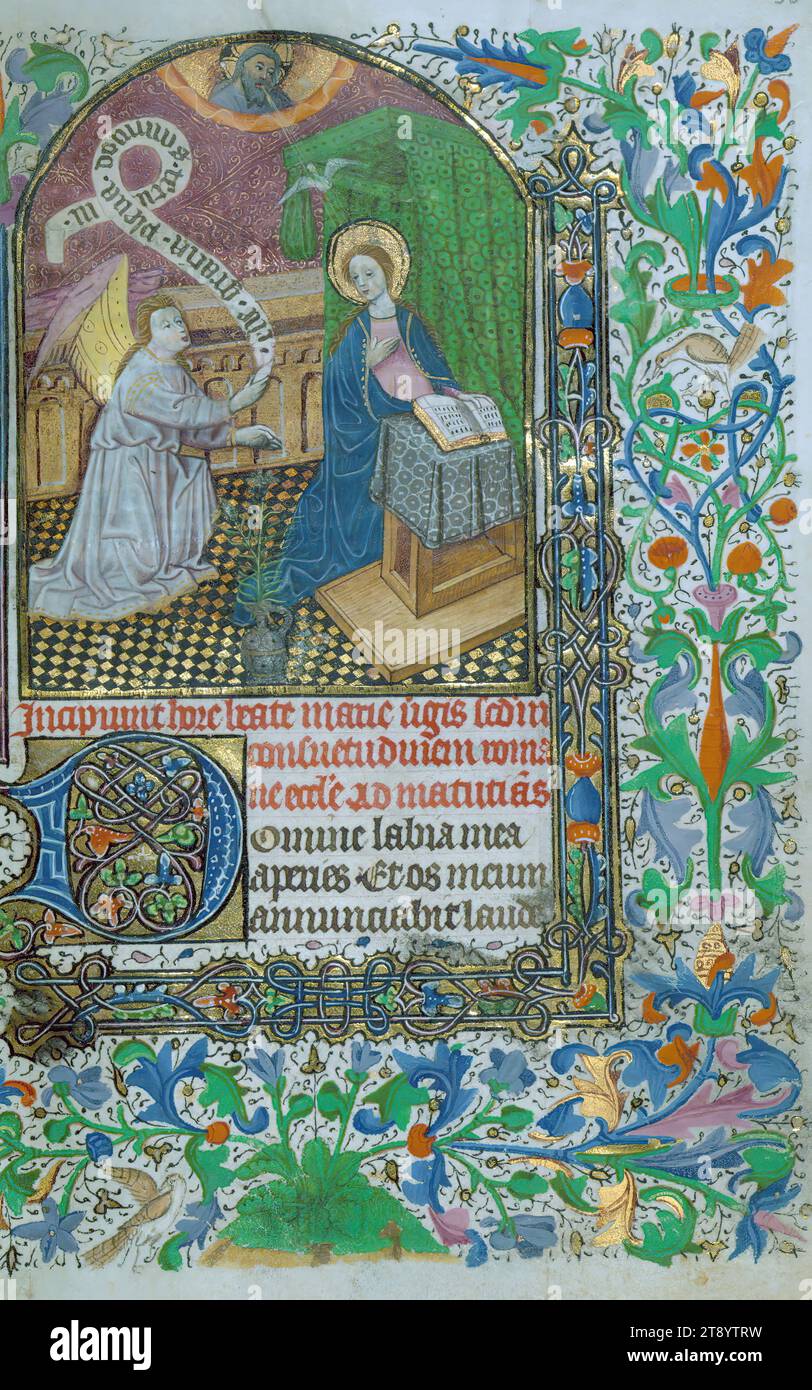 aue. gratia. plena. dominus. tecu m
Incipiunt hore beate marie v'gis scdm
consuetudinem roma
ne eccl'e Ad matuti̅as
Domine labia mea
aperies. Et os meum
annunciabit laude
alamy
Image ID: 2T8YTRW
www.alamy.com